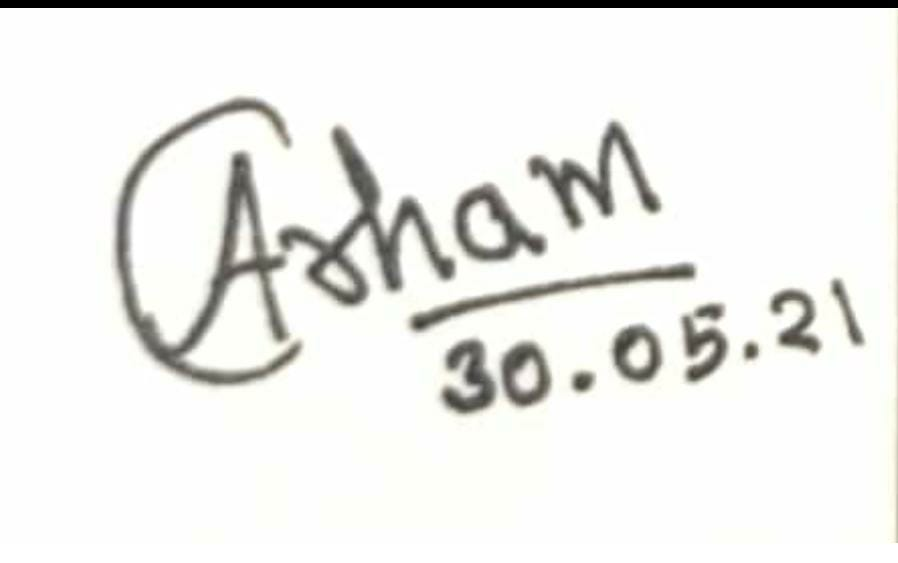 Asham
30.05.21